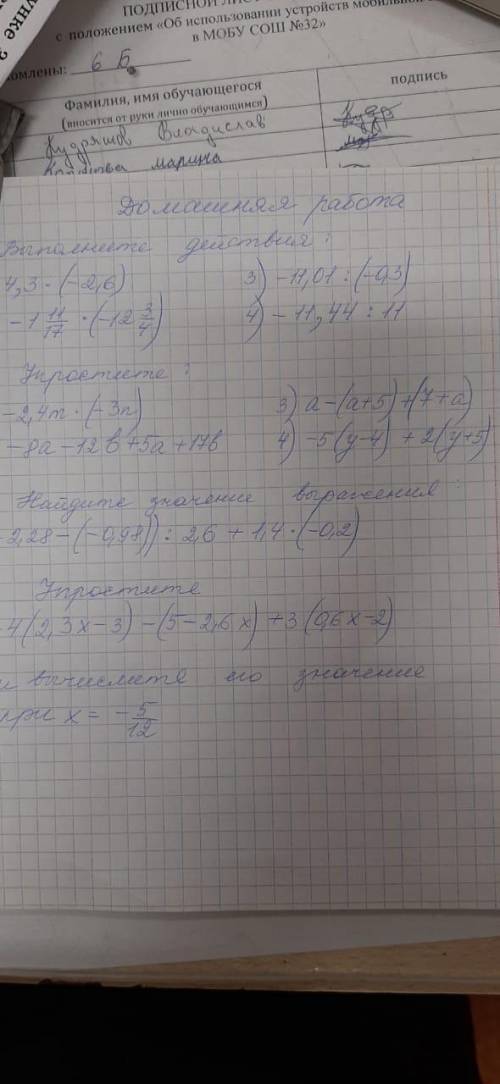 ПОДПИСНОЙ ЛИС
с положением «Об использовании устройств мобильной
в МОБУ СОШ №32»
омлены: 6 Б
Фамилия, имя обучающегося
(вносится от руки лично обучающимся)
подпись
Кудряшов Владислав
марина
Домашняя работа
Выполните действия:
4,3 · (-2,6)
3) -11,01 : (-0,3)
-1 11/17 · (-12 3/4)
4) -11,44 : 11
Упростите:
-2,4m · (-3n)
3) a-(a+5)+(7+a)
-8a-12b+5a+17b
4) -5(y-4)+2(y+5)
Найдите значение выражения:
2,28-(-0,98)) : 2,6 + 1,4 · (-0,2)
Упростите
4(2,3x-3)-(5-2,6x)+3(0,6x-2)
и вычислите его значение
при x = -5/12